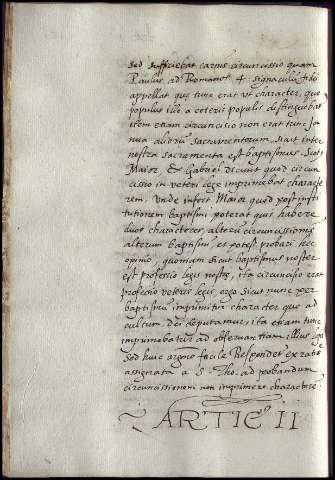 sed sufficiebat carnis circuncisio quam
Paulus ad Romanos 4. signaculũ fidei
appellat quę tunc erat vt character, quę
populus ille a ceteris populis distinguebat
item etiam circuncisio non erat tunc ja
nua aliorũ sacramentorum sicut inter
nostra sacramenta est baptismus. Sed
Maior & Gabriel dicunt quod circun
cisio in veteri lege imprimebat characte
rem. vnde infert Maior quod post insti
tutionem baptismi poterat quis habere
duos characteres, alterũ circuncissionis
alterum baptismi, et potest probari hęc
opinio, quoniam sicut baptismus noster
est professio legis nostrę, ita circuncisio erat
professio veteris legis ergo sicut nunc per
baptismũ imprimitur character quo ad
cultum dei deputamur, ita etiam tunc
imprimebatur ad obseruantiam illius legis
Sed huic argũo facile Respondetr ex ratõe
assignata a S. Tho. ad probandum
circuncissionem non imprimere characterẽ.
ARTICo II